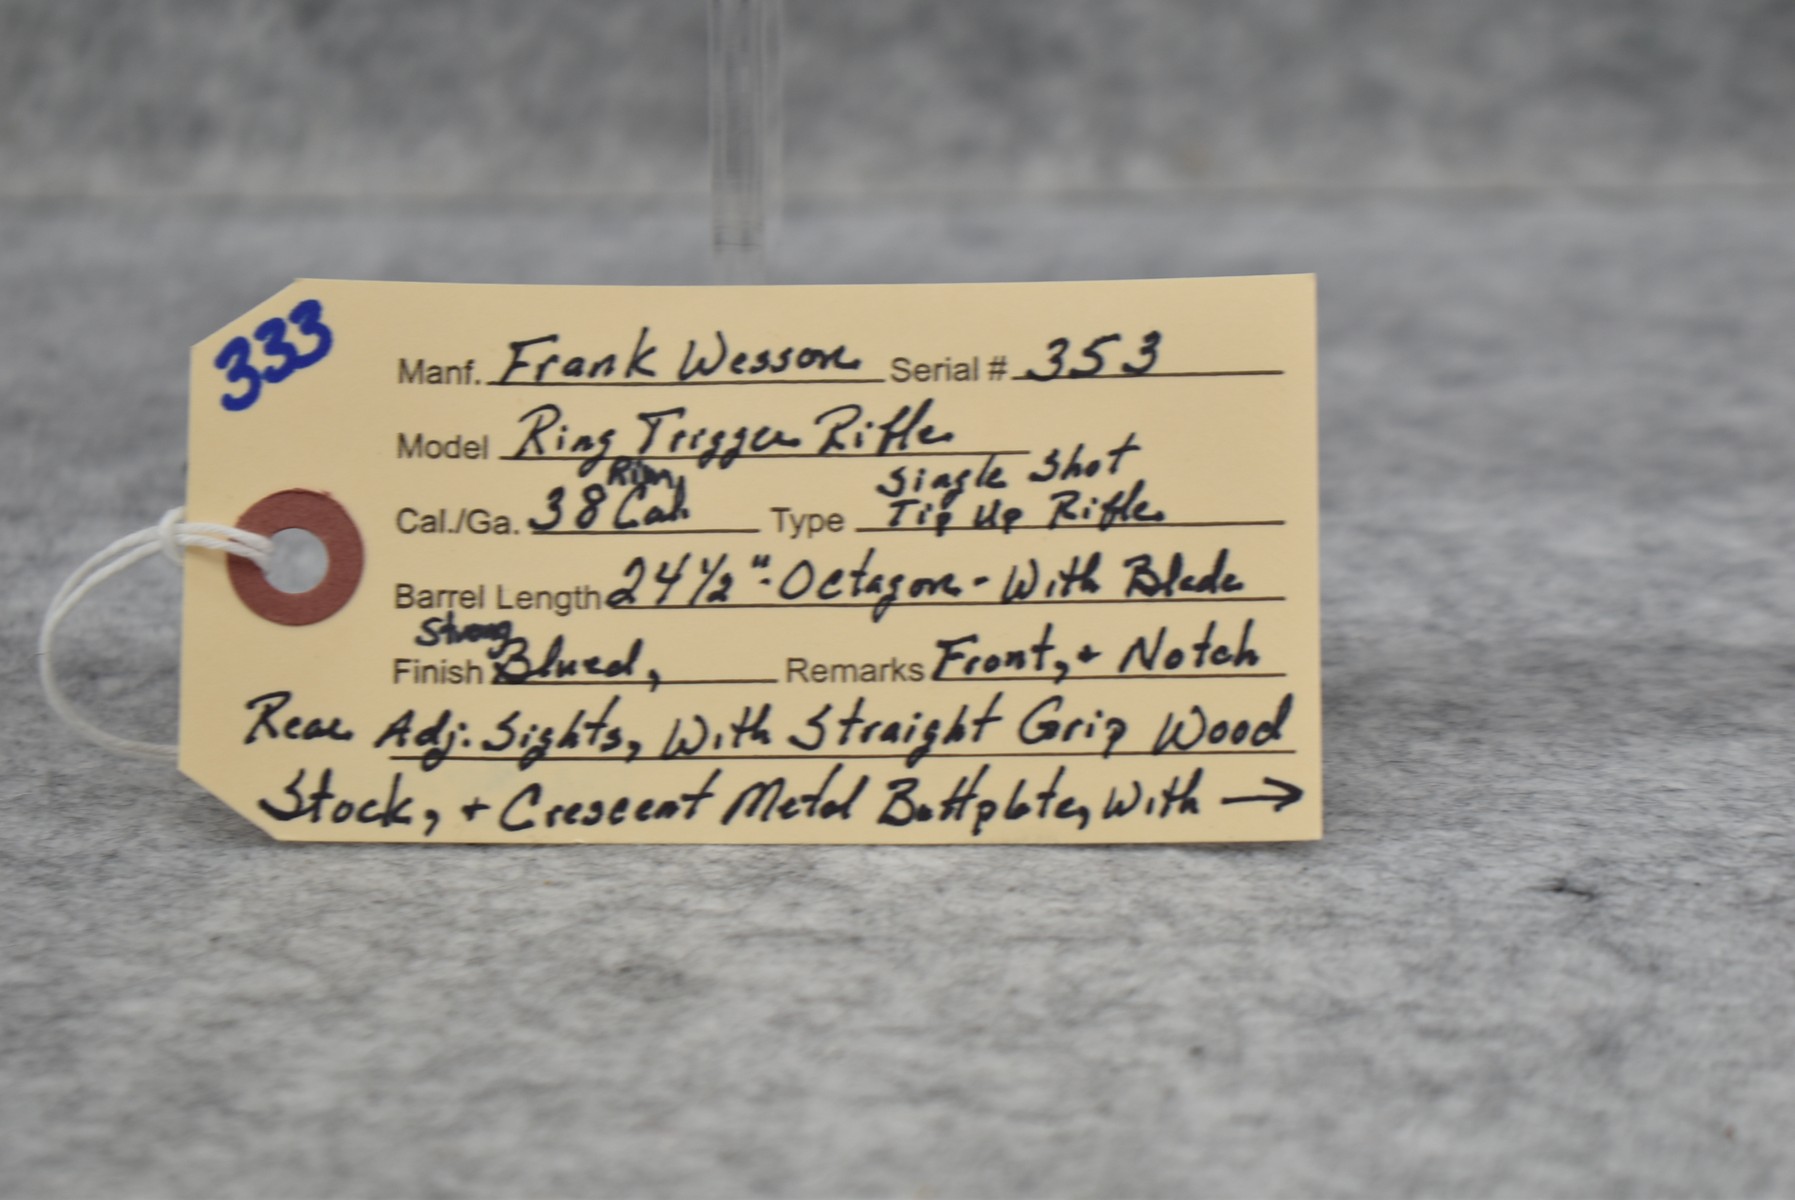 333
Manf. Frank Wesson Serial # 353
Model Ring Trigger Rifle
Cal./Ga. 38 Rim Cal. Type Single Shot
Tip Up Rifle
Barrel Length 24 1/2" - Octagon - With Blade
Strong
Finish Blued, Remarks Front, + Notch
Rear Adj. Sights, With Straight Grip Wood
Stock, + Crescent Metal Buttplate, With →